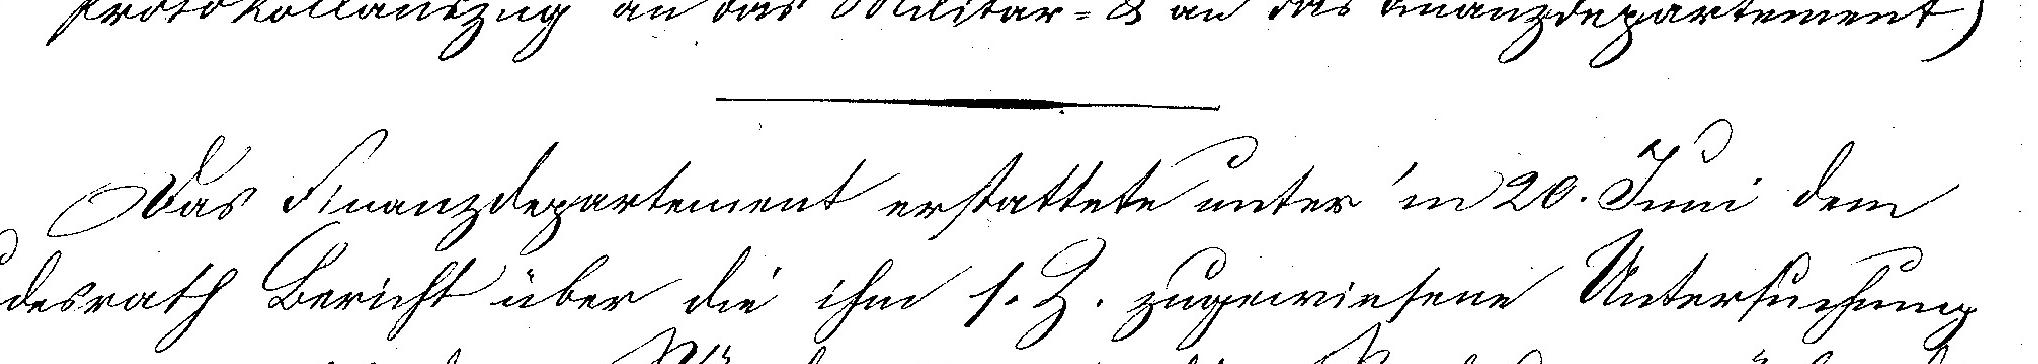 Protokollauszug an das Militär= & an das Finanzdepartement)
Das Finanzdepartement erstattete unter'm 20. Juni dem
desrath Bericht über die ihm s. Z. zugewiesene Untersuchung